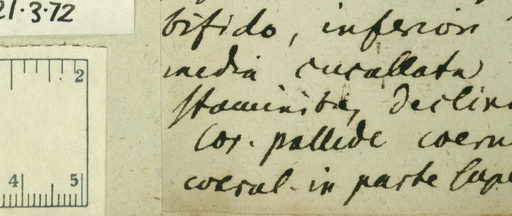 21·3·72
2
4 5
bifido, inferior
media cucullata
staminibq, declin
Cor. pallide coeru
coerul. in parte supe